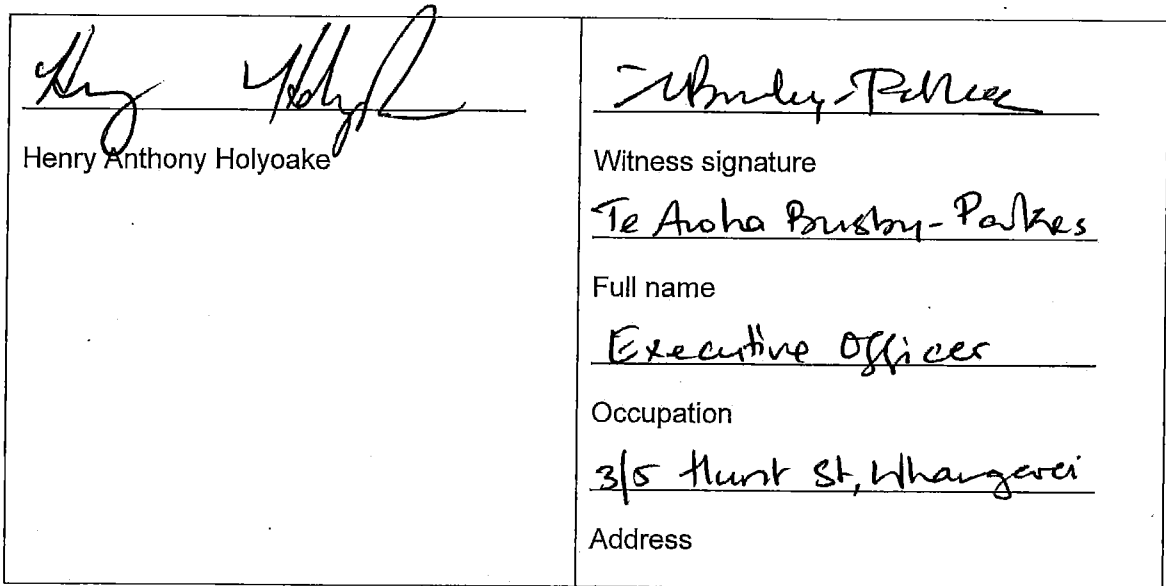 Henry Anthony Holyoake
Witness signature
Te Aroha Busby-Parkes
Full name
Executive Officer
Occupation
3/5 Hunt St, Whangarei
Address